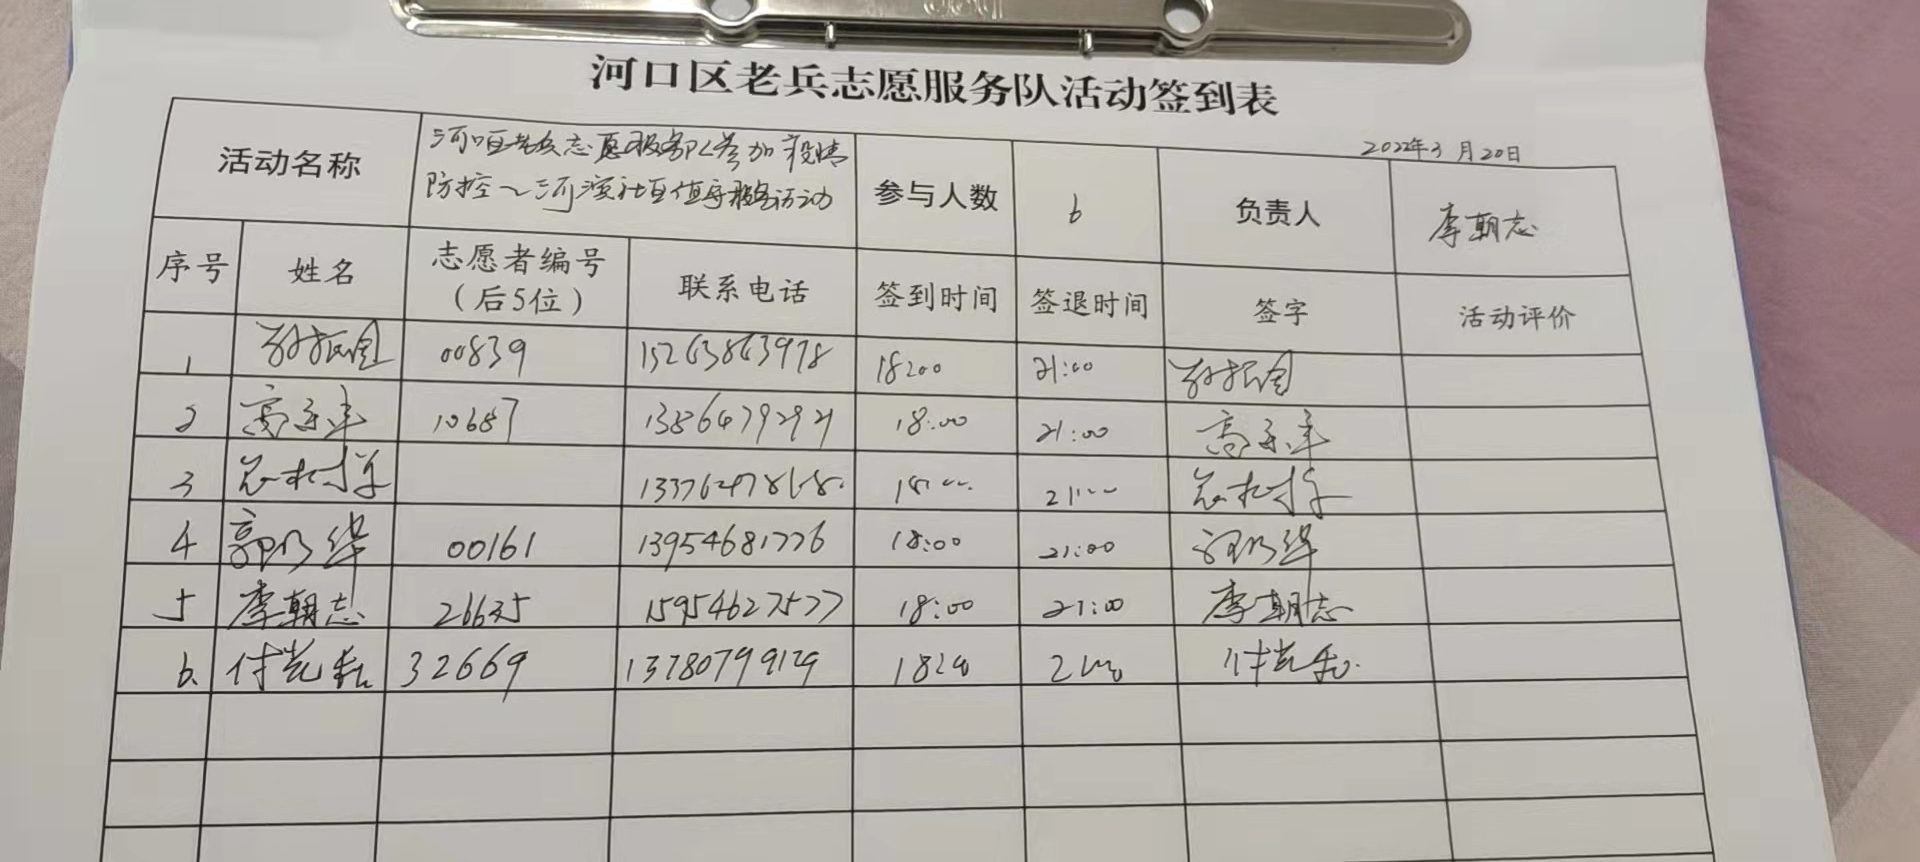 河口区老兵志愿服务队活动签到表
2022年3月20日
活动名称 河口区老兵志愿服务队参加疫情
防控~河滨社区值守服务活动 参与人数 6 负责人 李朝志
序号 姓名 志愿者编号（后5位） 联系电话 签到时间 签退时间 签字 活动评价
1 00839 15263863978 18:00 21:00
2 10687 13864792921 18:00 21:00
3 18:00 21:00
4 郭乃华 00161 13954681776 18:00 21:00
5 李朝志 26635 15954627577 18:00 21:00 李朝志
6. 32669 13780799129 18:00 21:00